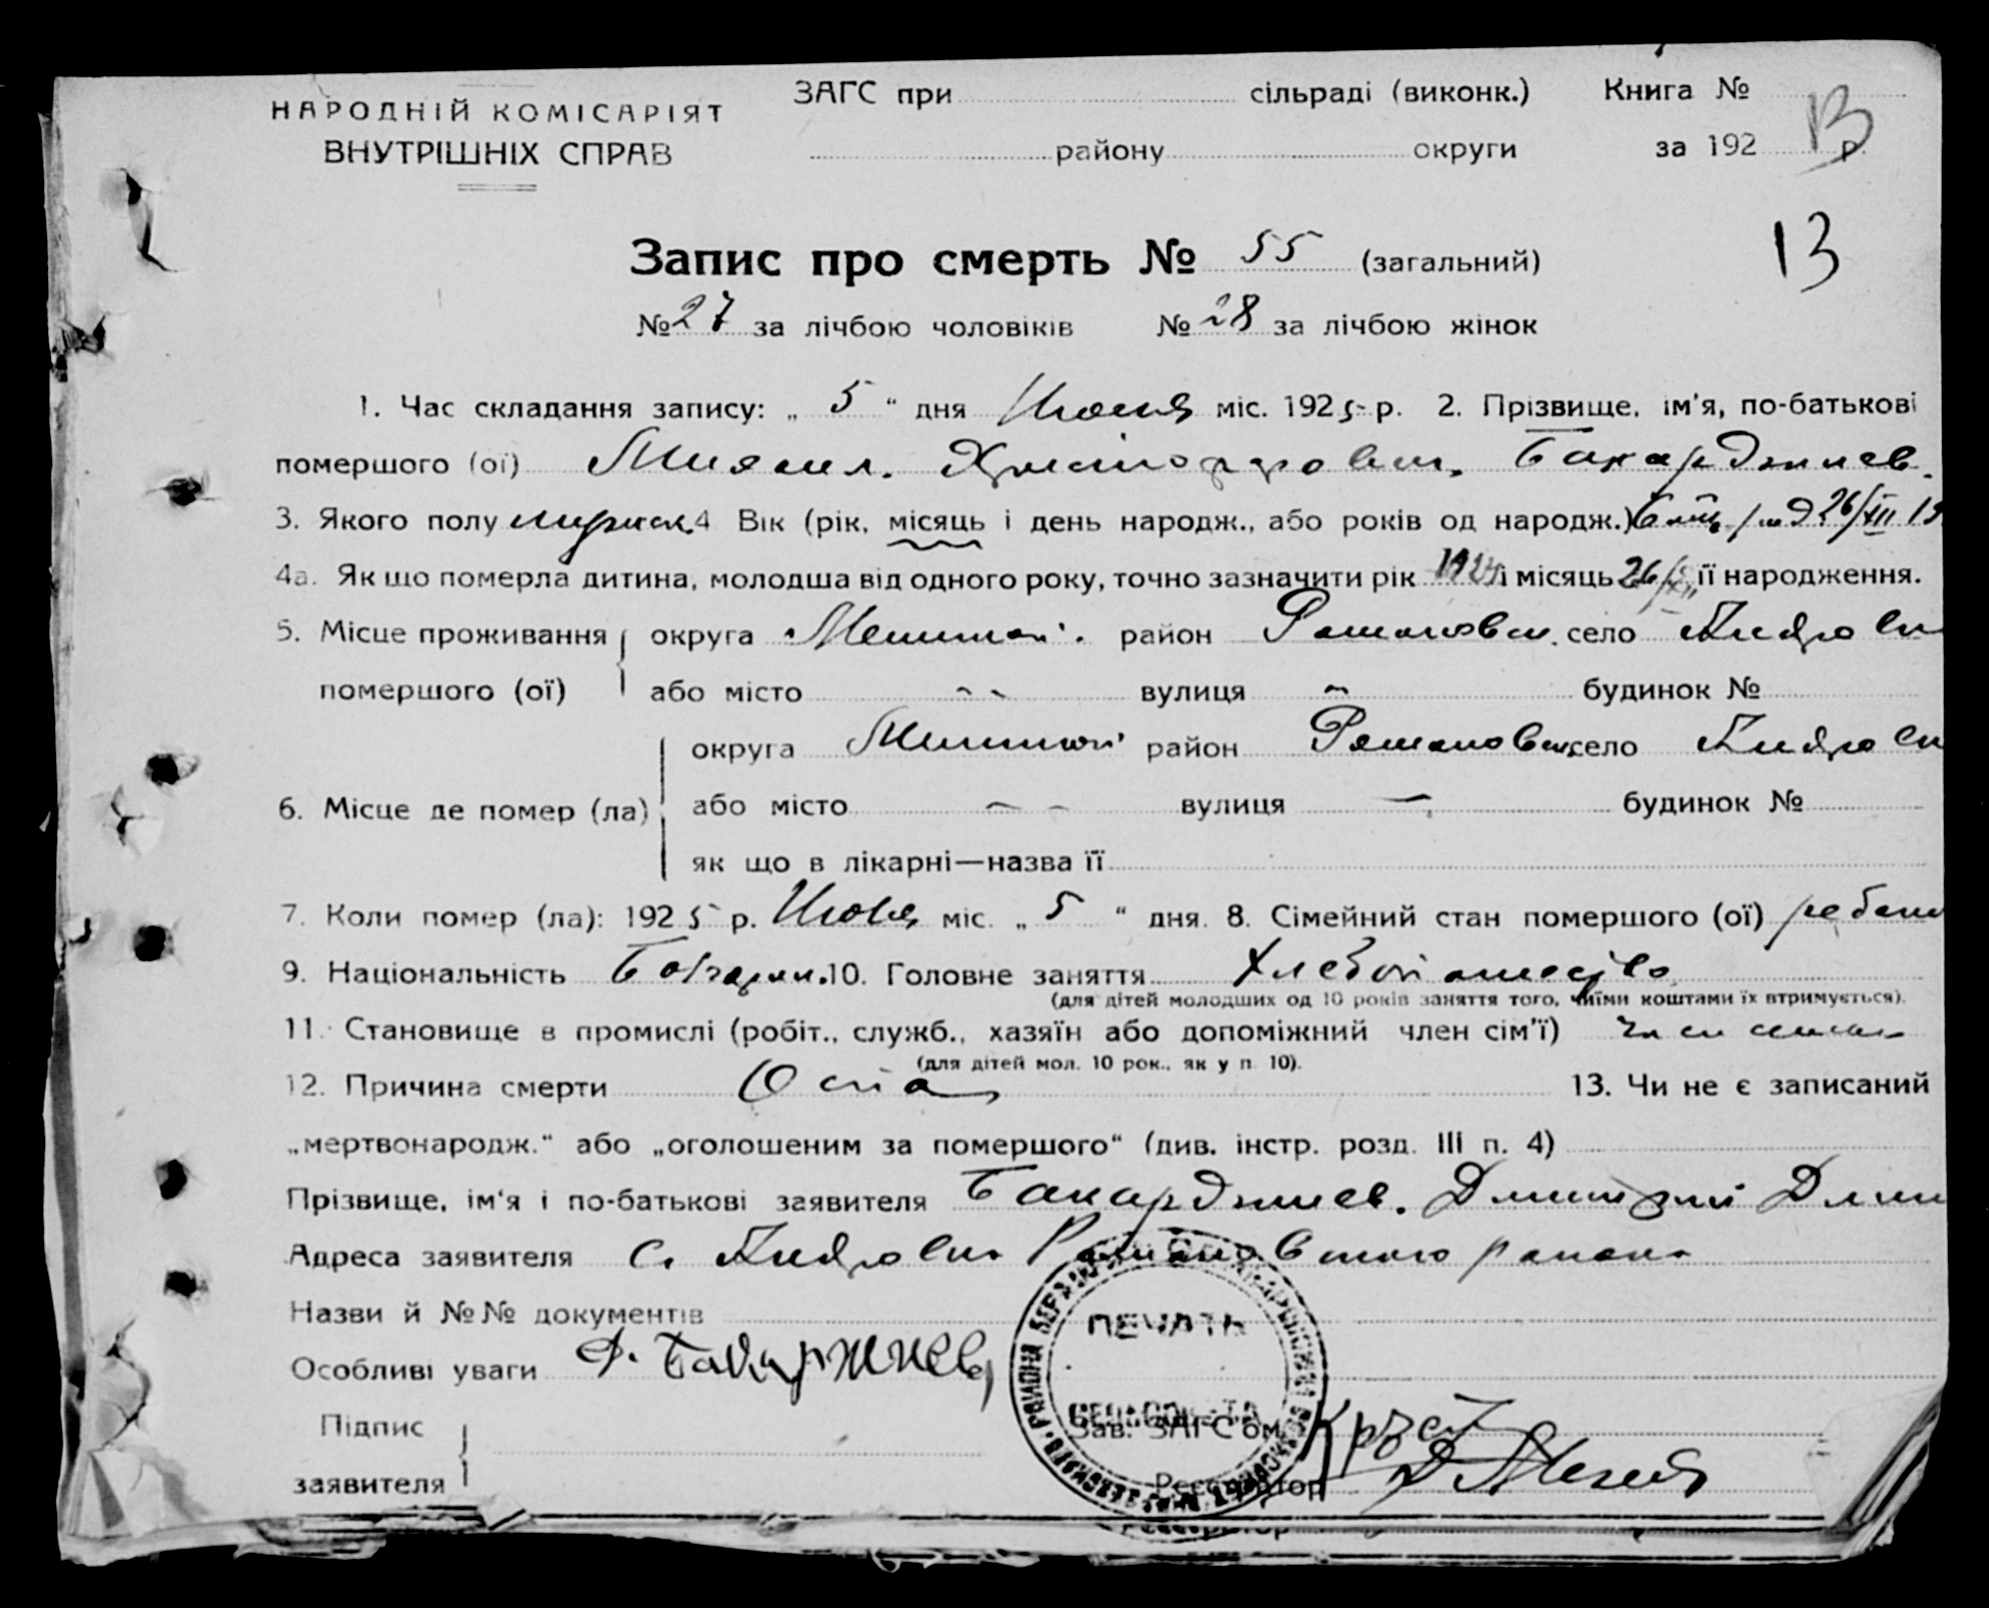 НАРОДНІЙ КОМІСАРІЯТ
ВНУТРІШНІХ СПРАВ
ЗАГС при сільраді (виконк.) Книга №
району округи за 192 р.
13
13
Запис про смерть № 55 (загальний)
№ 27 за лічбою чоловіків № 28 за лічбою жінок
1. Час складання запису: „ 5 “ дня Июня міс. 1925 р. 2. Прізвище, ім'я, по-батькові
помершого (ої) Михаил. Христофорович. Бакарджиев.
3. Якого полу мужск. 4 Вік (рік, місяць і день народж., або років од народж.) 6 26/XII 19
4а. Як що померла дитина, молодша від одного року, точно зазначити рік 1924 і місяць 26/XII її народження.
5. Місце проживання помершого (ої) округа район Романовск. село Андровк
або місто вулиця будинок №
6. Місце де помер (ла) округа район Романовск. село Андровк
або місто вулиця будинок №
як що в лікарні—назва її
7. Коли помер (ла): 1925 р. Июня міс. „ 5 “ дня. 8. Сімейний стан помершого (ої) ребено
9. Національність Болгарин. 10. Головне заняття Хлебопашество
(для дітей молодших од 10 років заняття того, чиїми коштами їх втримується).
11. Становище в промислі (робіт., служб., хазяїн або допоміжний член сім'ї)
(для дітей мол. 10 рок., як у п. 10).
12. Причина смерти Оспа 13. Чи не є записаний
„мертвонародж.“ або „оголошеним за помершого“ (див. інстр. розд. III п. 4)
Прізвище, ім'я і по-батькові заявителя Бакарджиев. Дмитрий Дми
Адреса заявителя с. Андровка Романовского района
Назви й №№ документів
Особливі уваги Бакаржиев
ПЕЧАТЬ
Підпис
заявителя
Зав. ЗАГС'ом
Реєстратор